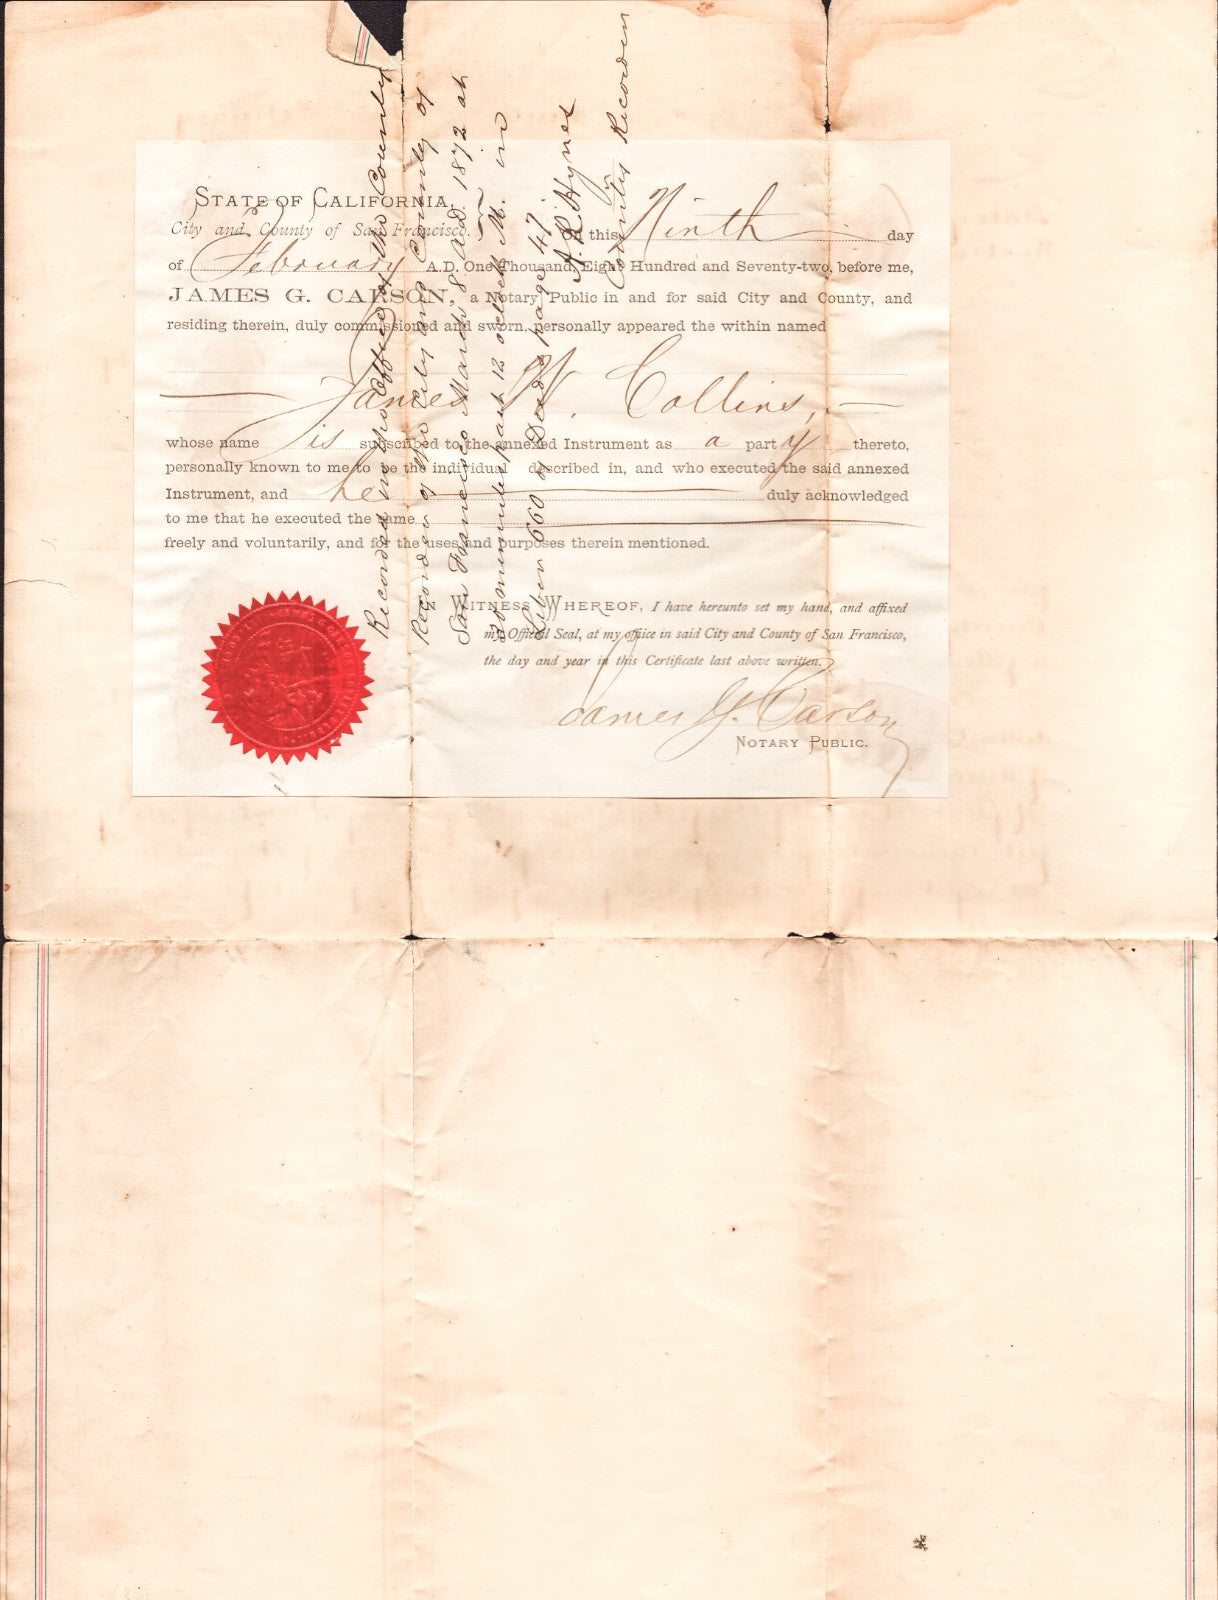 STATE OF CALIFORNIA,
City and County of San Francisco. } On this Ninth day
of February A.D. One Thousand Eight Hundred and Seventy-two, before me,
JAMES G. CARSON, a Notary Public in and for said City and County, and
residing therein, duly commissioned and sworn, personally appeared the within named
James W. Collins,
whose name is subscribed to the annexed Instrument as a party thereto,
personally known to me to be the individual described in, and who executed the said annexed
Instrument, and he duly acknowledged
to me that he executed the same
freely and voluntarily, and for the uses and purposes therein mentioned.
IN WITNESS WHEREOF, I have hereunto set my hand, and affixed
my Official Seal, at my office in said City and County of San Francisco,
the day and year in this Certificate last above written.
James G. Carson
NOTARY PUBLIC.
Recorded in the Office of the County
Recorder of the City and County of
San Francisco March 8 A.D. 1872 at
30 minutes past 12 oclock M. in
Liber 660 of Deeds page 47.
County Recorder